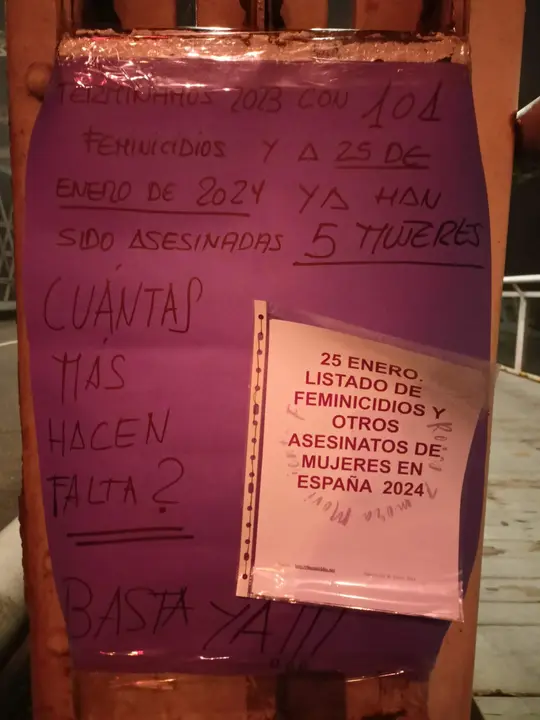 TERMINAMOS 2023 CON 101
FEMINICIDIOS Y A 25 DE
ENERO DE 2024 YA HAN
SIDO ASESINADAS 5 MUJERES
CUÁNTAS
MÁS
HACEN
FALTA?
BASTA YA!!!
25 ENERO.
LISTADO DE
FEMINICIDIOS Y
OTROS
ASESINATOS DE
MUJERES EN
ESPAÑA 2024